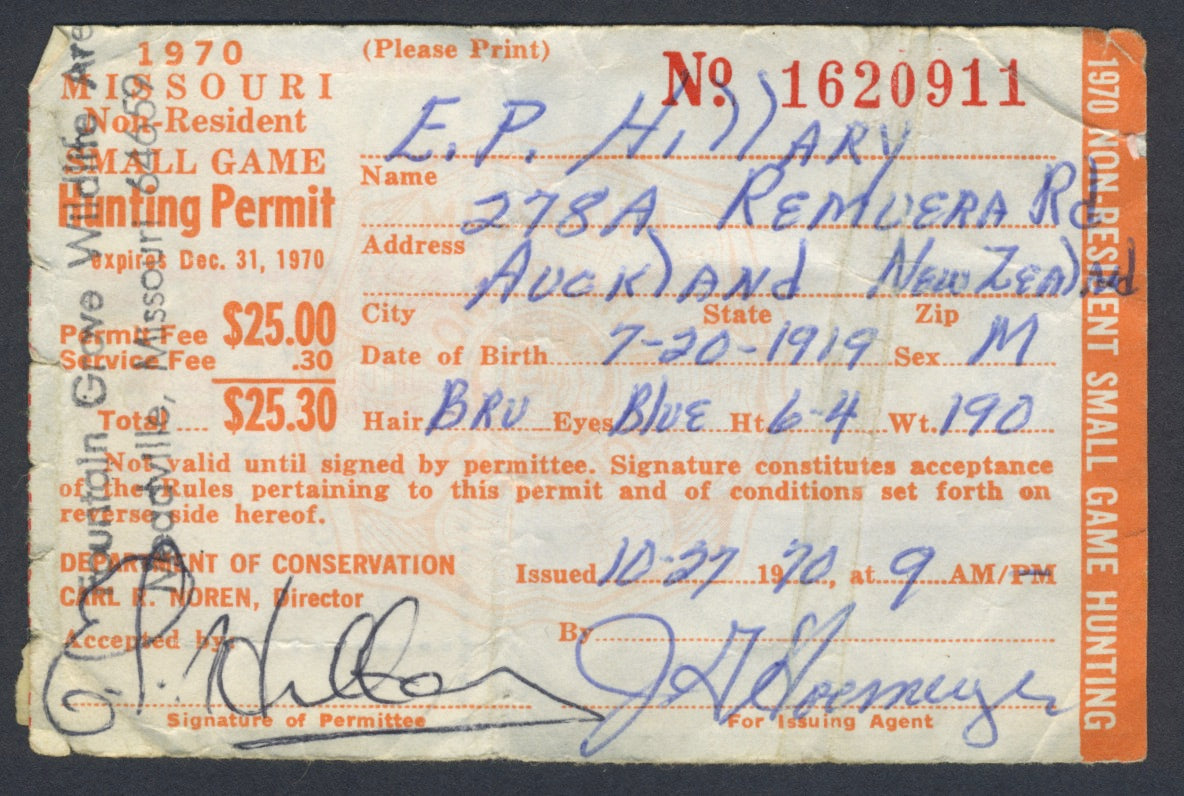 1970
MISSOURI
Non-Resident
SMALL GAME
Hunting Permit
expires Dec. 31, 1970
Permit Fee $25.00
Service Fee .30
Total .... $25.30
Fountain Grove Wildlife Are
Meadville, Missouri 64659
(Please Print)
No. 1620911
E.P. Hillary
Name
278A Remuera Rd
Address
Auckland New Zealand
City State Zip
Date of Birth 7-20-1919 Sex M
Hair Bru Eyes Blue Ht. 6-4 Wt. 190
Not valid until signed by permittee. Signature constitutes acceptance
of the Rules pertaining to this permit and of conditions set forth on
reverse side hereof.
DEPARTMENT OF CONSERVATION
CARL R. NOREN, Director
Issued 10-27 1970, at 9 AM/PM
Accepted by:
E. P. Hillary
Signature of Permittee
By
For Issuing Agent
1970 NON-RESIDENT SMALL GAME HUNTING